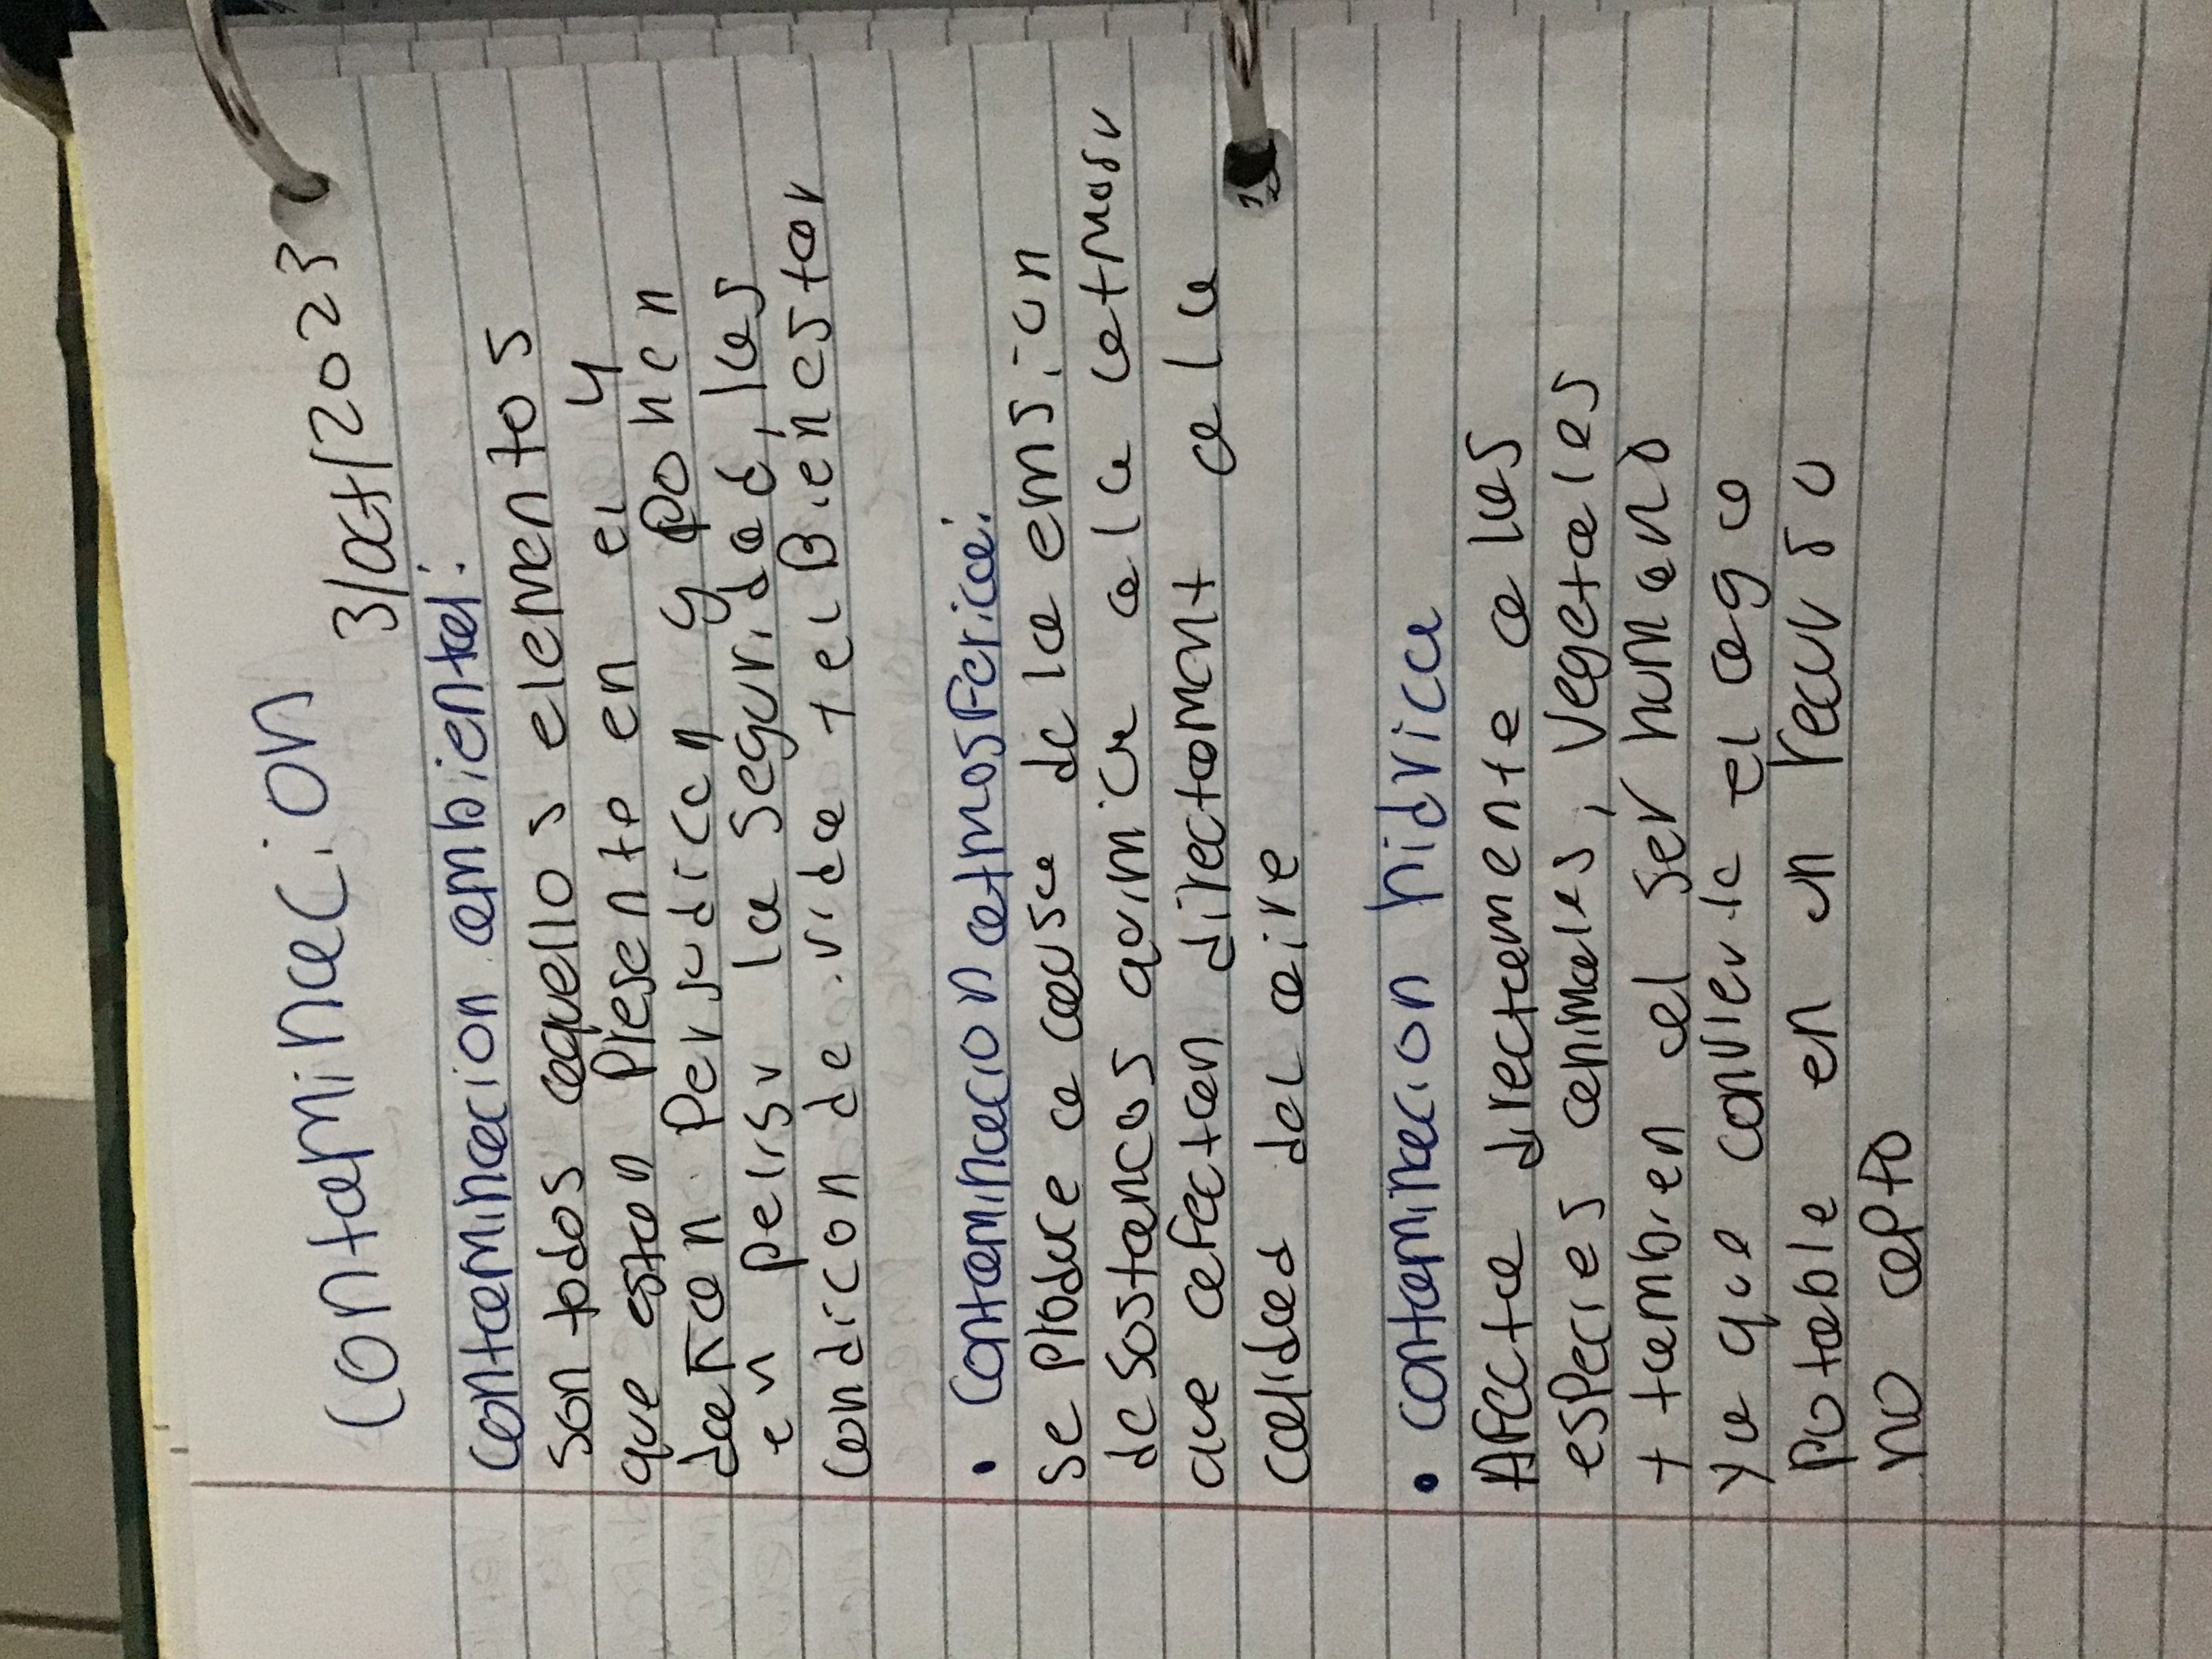 Contaminacion
3/oct/2023
Contaminacion ambiental:
son todos aquellos elementos
que estan presente en el y
dañan perjudican y ponen
en pelisr la seguridad, las
condicon de vida + el Bienestar
• Contaminacion atmosferica:
se produce a causa de la emsion
de sostancas quimica a la atmosr
que afectan directamant a la
calidad del aire
• contaminacion hidrica
Afecta directamente a las
especies animales, vegetales
+ tambien al ser humano
ya que convierte el agua
potable en un recurso
no apto